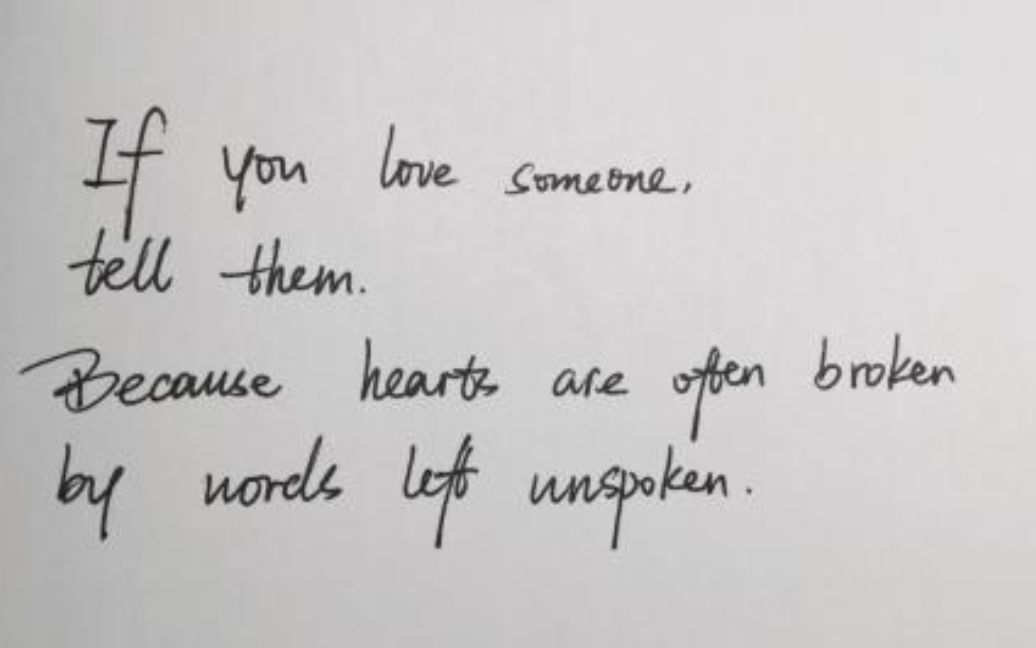 If you love someone,
tell them.
Because hearts are often broken
by words left unspoken.